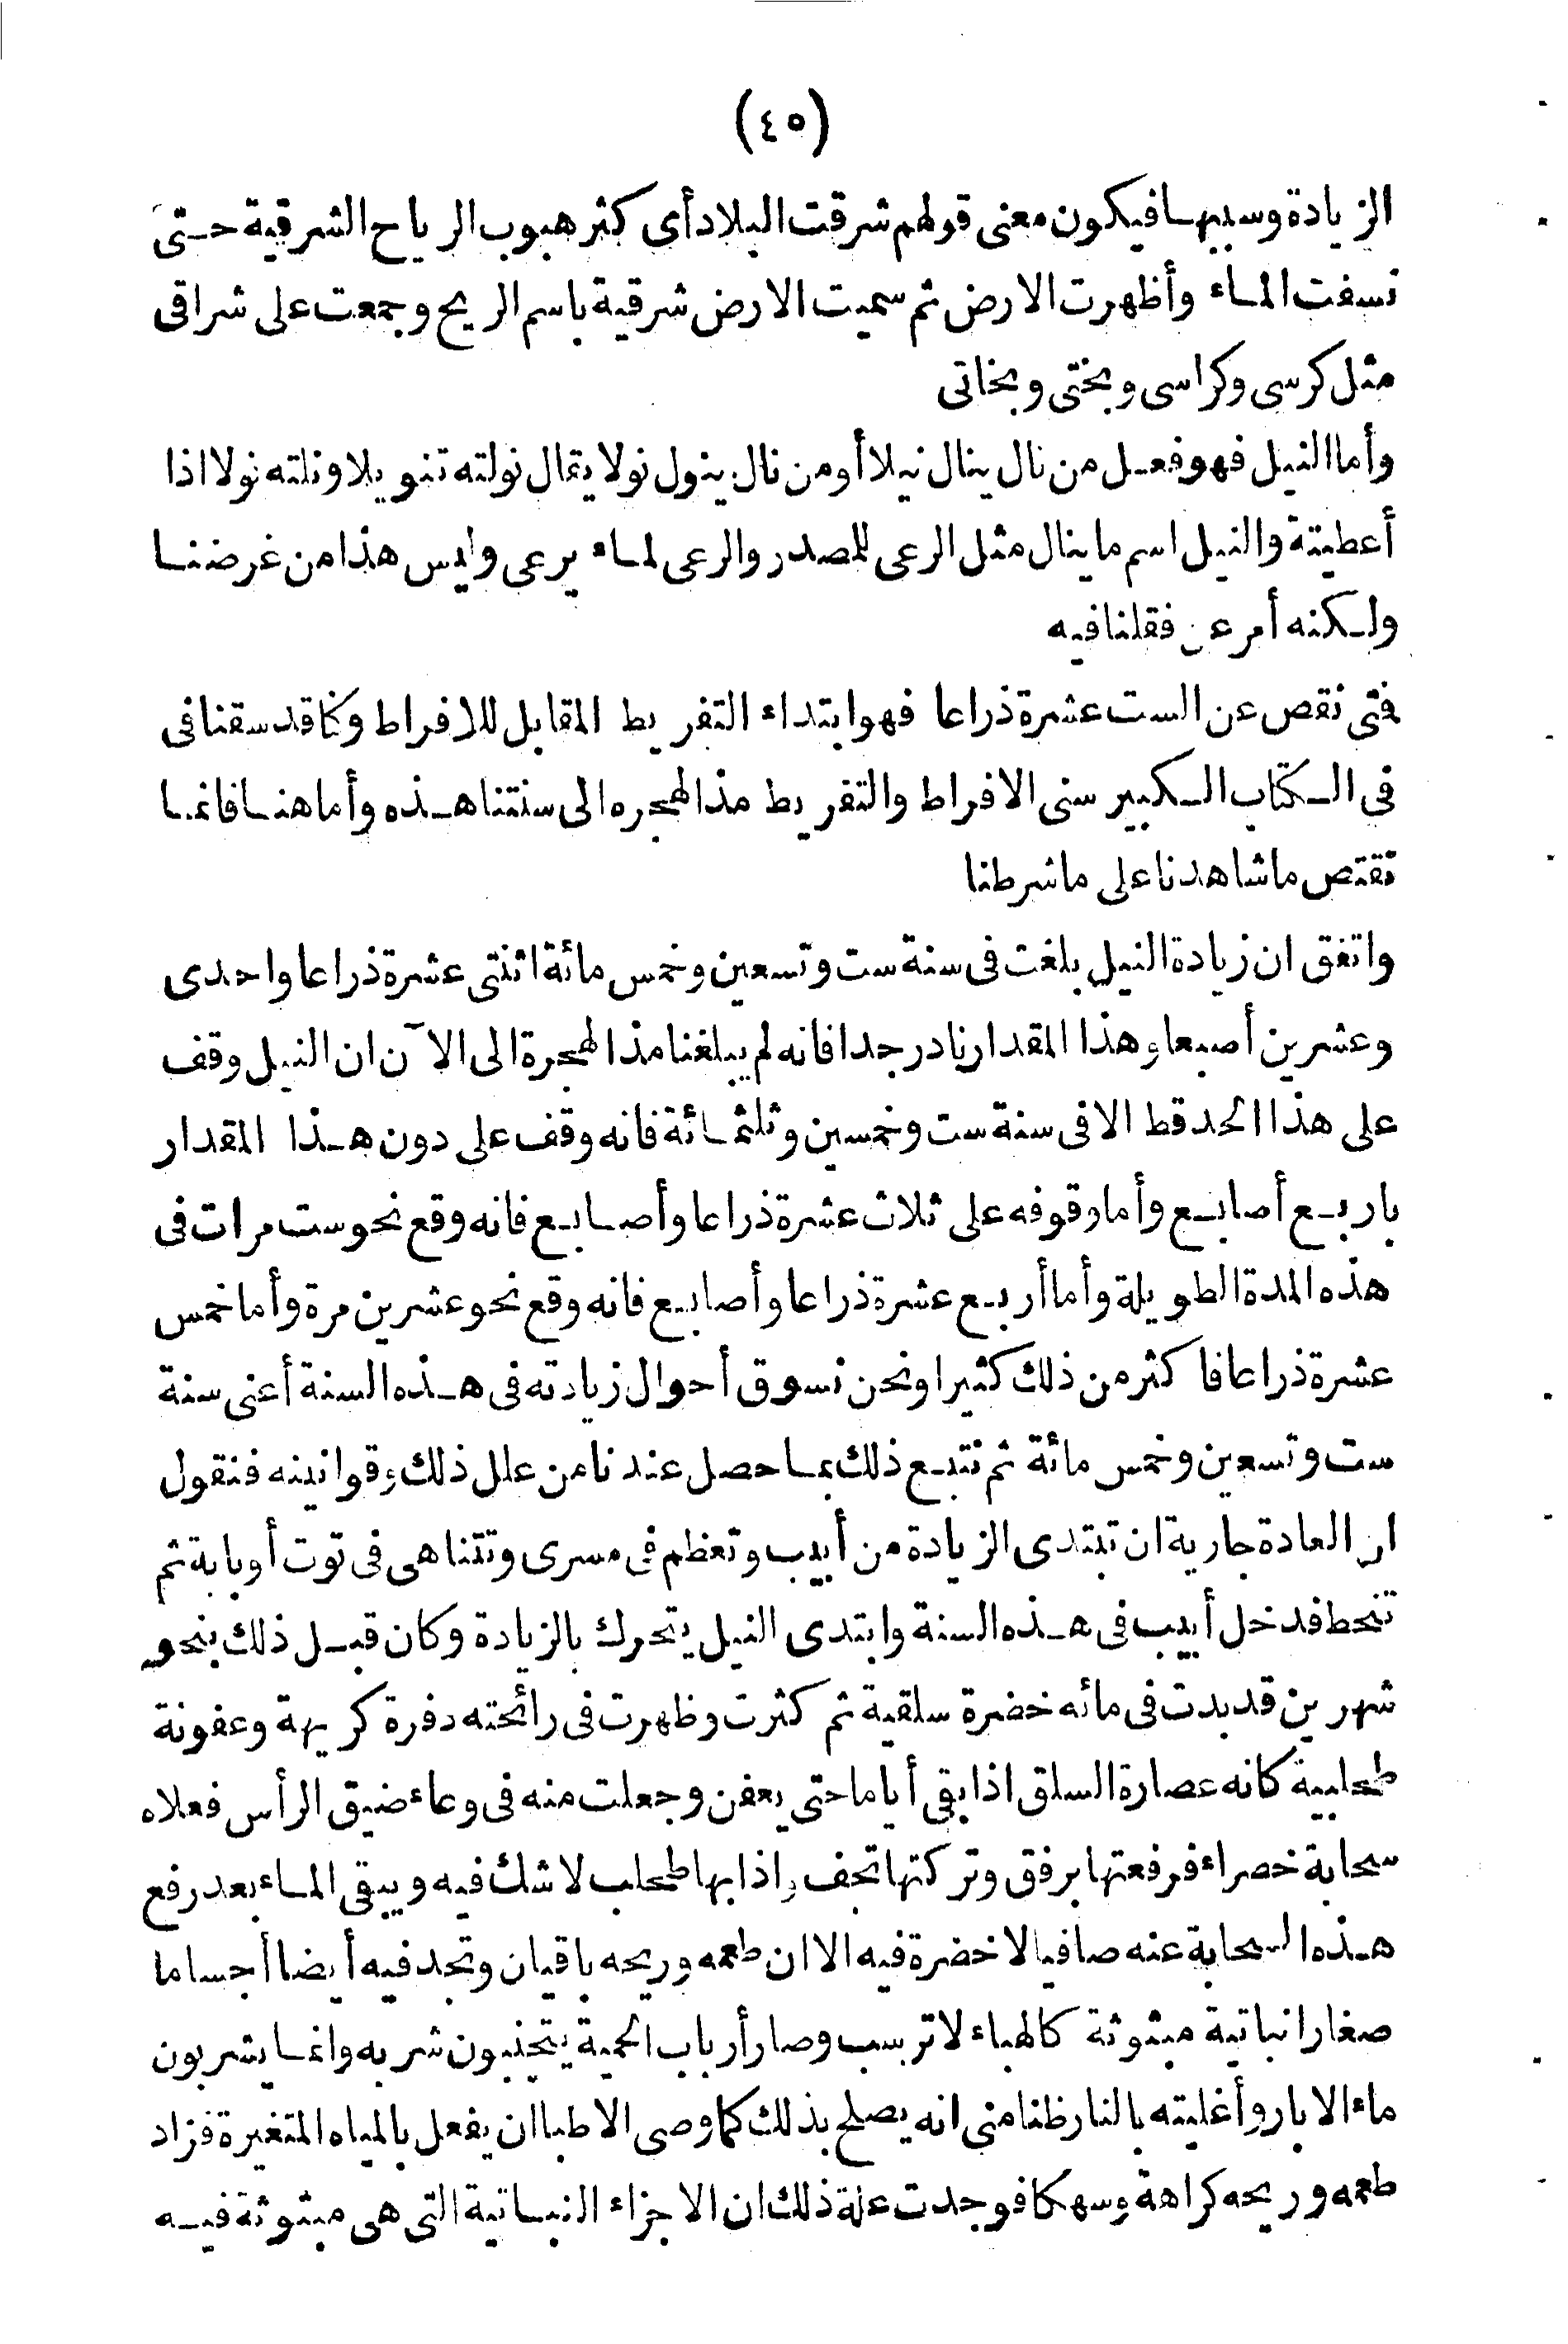 (٤٥)
الزيادة وسببها فيكون معنى قولهم شرقت البلاد أى كثر هبوب الرياح الشرقية حتى
نسفت الماء وأظهرت الارض ثم سميت الارض شرقية باسم الريح وجمعت على شراقى
مثل كرسى وكراسى وبختى وبخاتى
وأما النيل فهو فعل من نال ينال نيلا أو من نال ينول نولا يقال نولته تنويلا ونلته نولا اذا
أعطيتة والنيل اسم ما ينال مثل الرعى للمصدر والرعى لماء يرعى وليس هذا من غرضنا
ولكنه أمر عن فقلنا فيه
فتى نقص عن الست عشرة ذراعا فهو ابتداء التفريط المقابل للافراط وكنا قد سقنا فى
فى الكتاب الكبير سنى الافراط والتفريط مذ الهجره الى سنتنا هذه وأما هنا فانما
نقتص ما شاهدنا على ما شرطنا
واتفق ان زيادة النيل بلغت فى سنة ست وتسعين وخمس مائة اثنتى عشرة ذراعا واحدى
وعشرين أصبعا وهذا المقدار نادر جدا فانه لم يبلغنا مذ الهجرة الى الآن ان النيل وقف
على هذا الحد قط الا فى سنة ست وخمسين وثلثمائة فانه وقف على دون هذا المقدار
باربع أصابع وأما وقوفه على ثلاث عشرة ذراعا وأصابع فانه وقع نحو ست مرات فى
هذه المدة الطويلة وأما أربع عشرة ذراعا وأصابع فانه وقع نحو عشرين مرة وأما خمس
عشرة ذراعا فاكثر من ذلك كثيرا ونحن نسوق أحوال زيادته فى هذه السنة أعنى سنة
ست وتسعين وخمس مائة ثم نتبع ذلك بما حصل عندنا من علل ذلك وقوانينه فنقول
ان العادة جارية ان تبتدى الزيادة من أبيب وتعظم فى مسرى وتتناهى فى توت أو بابة ثم
تنحط فدخل أبيب فى هذه السنة وابتدى النيل يتحرك بالزيادة وكان قبل ذلك بنحو
شهرين قد بدت فى مائه خضرة سلقية ثم كثرت وظهرت فى رائحته دفرة كريهة وعفونة
طحلبية كانه عصارة السلق اذا بقى أياما حتى يعفن وجعلت منه فى وعاء ضيق الرأس فعلاه
سحابة خصراء فرفعتها برفق وتركتها تجف واذا بها طحلب لا شك فيه ويبقى الماء بعد رفع
هذه السحابة عنه صافيا لا خضرة فيه الا ان طعمه وريحه باقيان وتجد فيه أيضا أجساما
صغارا نباتية مبثوثة كالهباء لا ترسب وصار أرباب الحمية يتجنبون شربه وانما يشربون
ماء الابار وأغليته بالنار ظنا منى انه يصلح بذلك كما وصى الاطبا ان يفعل بالمياه المتغيرة فزاد
طعمه وريحه كراهة وسهكا فوجدت علة ذلك ان الاجزاء النباتية التى هى مبثوثة فيه